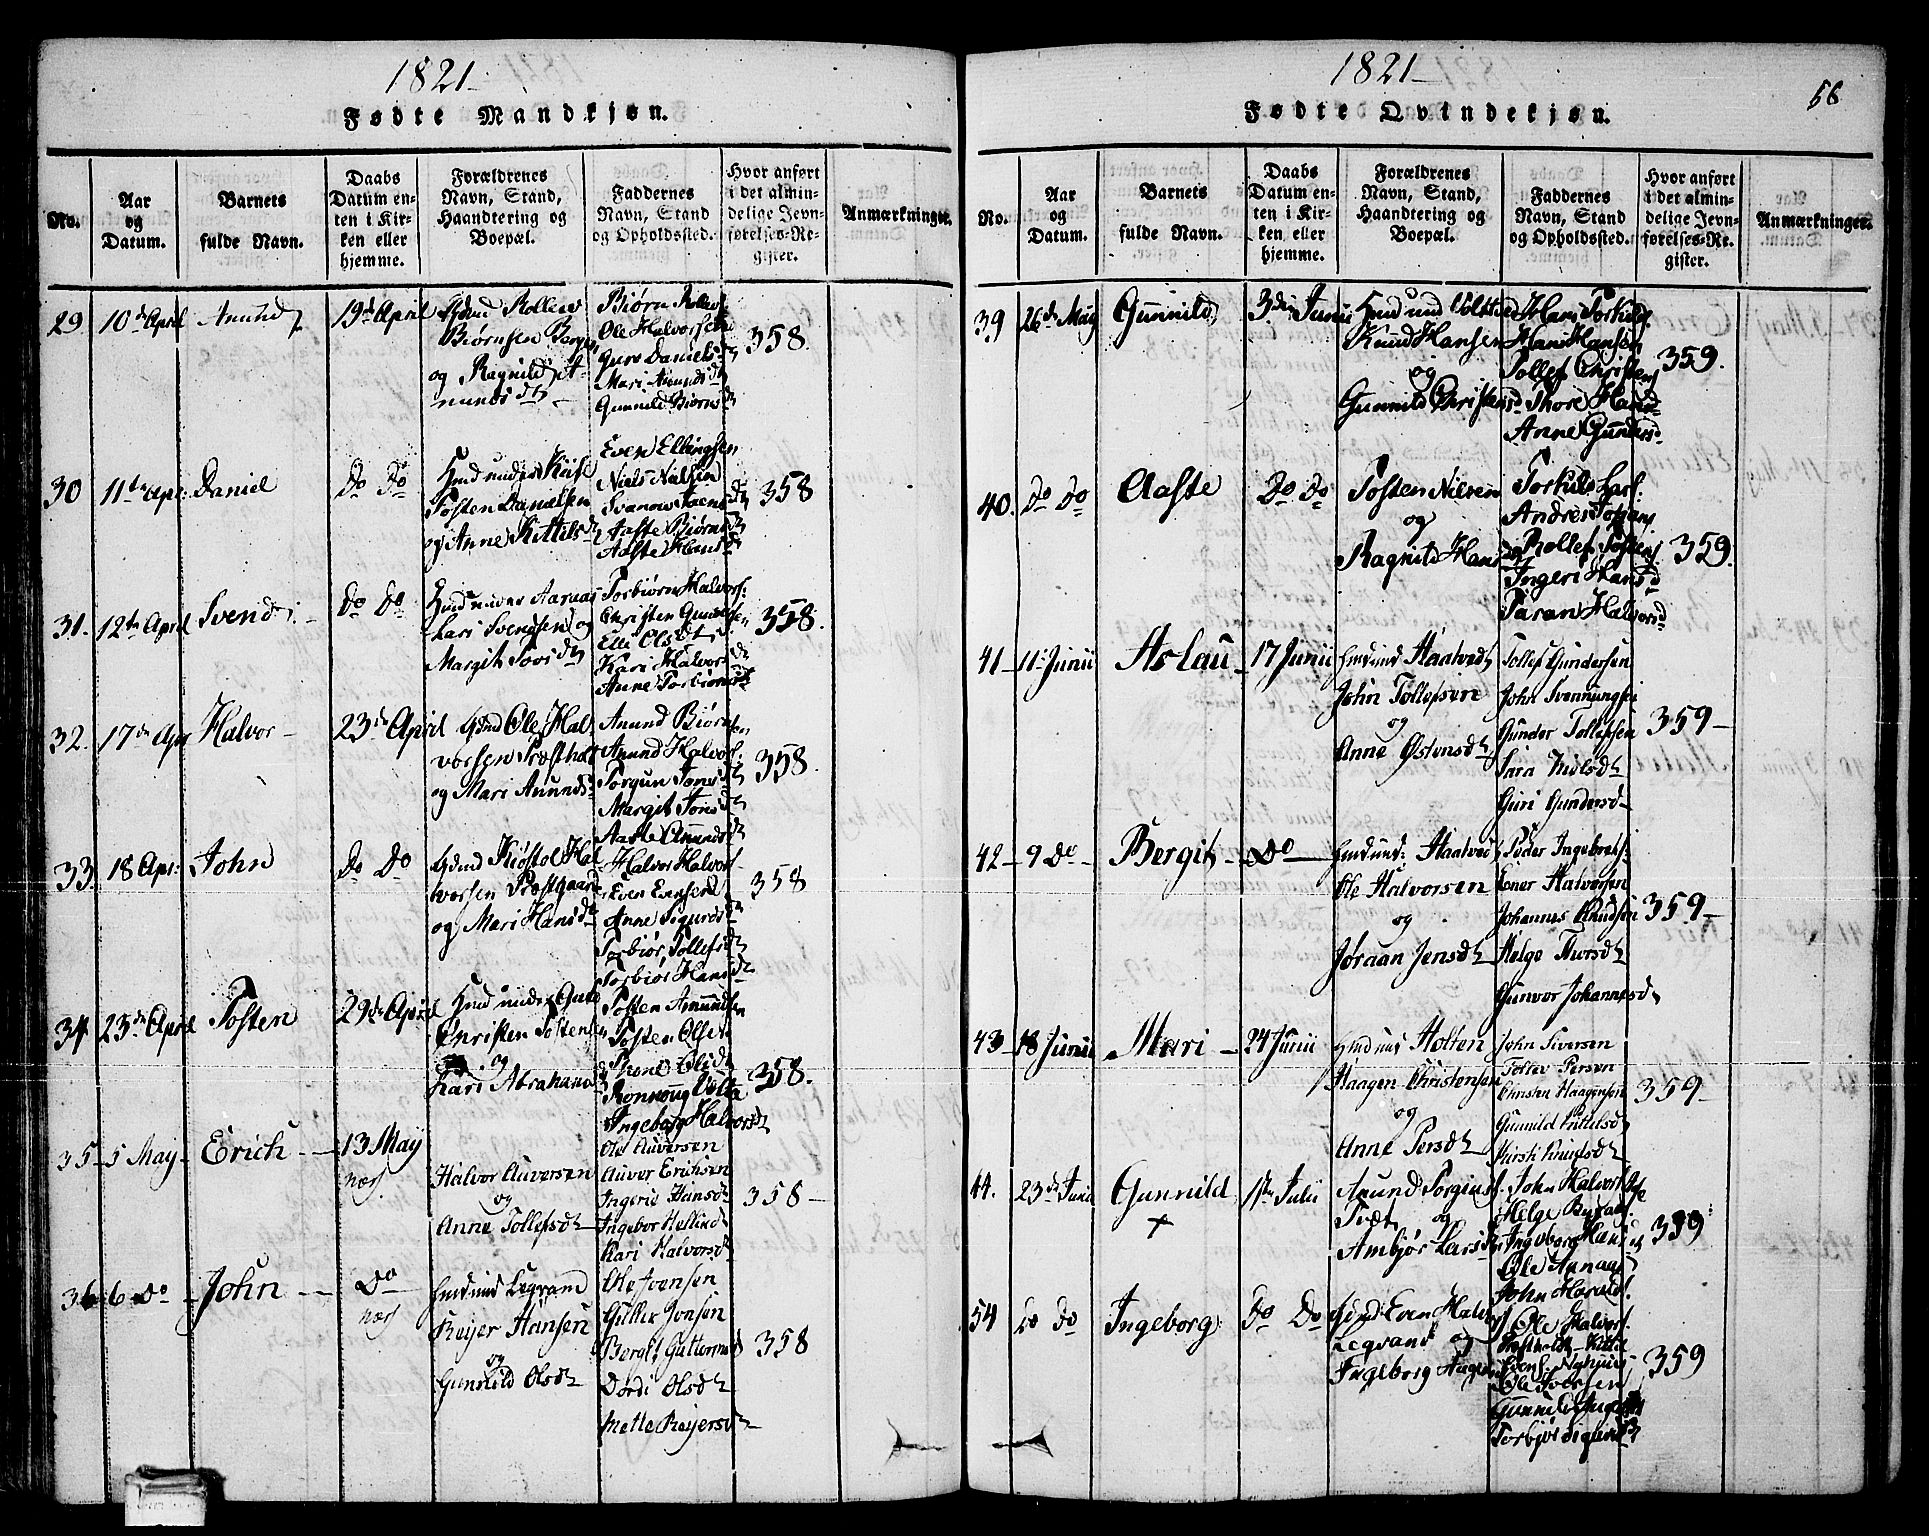 1821
Fødte Mandkjøn.
No.
Aar og Datum.
Barnets fulde Navn.
Daabs Datum enten i Kirken eller hjemme.
Forældrenes Navn, Stand, Haandtering og Boepæl.
Faddernes Navn, Stand og Opholdssted.
Hvor anført i det almindelige Jevnførelses-Register.
Anmærkninger.
29 10de April Amund 19de April
Rollew
Biørnsen
og Ragnild A-
munds d
Biørn
Ole Halvorsen
Guro Daniels d
Mari Amunds d
Gunnild Biørns d
358.
30 11te Apr. Daniel Do Do
Hmd under
Tosten Danielsen
og Anne Kittils d
Even Ellingsen
Niels Nielsen
Aaste Biørns d
Aaste Hans d
358
31. 12te April Svend Do Do
Hmd under Aarnæs
Lars Svendsen og
Margit d
Torbiørn Halvors:
Christen Gunders:
Elli Ols d
Kari Halvors d
Anne Torbiørns d
358.
32. 17de Apr Halvor 23de April
Ole Hal
vorsen Præstholt
og Mari Amunds
Amund Biørnsen
Amund Halvors:
Torgun Jons d
Margit Jons d
Aaste Amunds d
358.
33. 18 Apr: John Do Do
Kiøstol Hal
vorsen Præstgaard
og Mari Hans d
Halvor Halvors
Even Evensen
Anne Sigurds d
Torbiør Tollefs d
Torbiør Hans d
358
34 23de April Tosten 29de April
Hmd under
Christen Tostensen
og
Kari Abrahams d
Tosten Amundsen
Tosten Olsen
Thone Ols d
Ingeborg Halvors d
358.
35 5 May Erich 13 May
Halvor Auversen
og
Anne Tollefsd
Ole Auversen
Auver Erichsen
Ingerid Hansd
Ingebor
Kari Halvorsd
358
36 6 Do John Do
Hmd und Legrand
Reijer Hansen
og
Gunnild Olsd
Ole Jvensen
Gutter Jonsen
Bergit Gutterms d
Dordi Olsd
Mette Reijersd
358
1821
56
Fødte Qvindekjøn.
No.
Aar og Datum.
Barnets fulde Navn.
Daabs Datum enten i Kirken eller hjemme.
Forældrenes Navn, Stand, Haandtering og Boepæl.
Faddernes Navn, Stand og Opholdssted.
Hvor anført i det almindelige Jevnførelses-Register.
Anmærkninger.
39 26de May Gunnild 3die Junii
Hmd und
Knud Hansen
og
Gunnild Christens d
Hans Torkils.
Hans Hansen
Tollef Christens
Thore Hans d
Anne Gunders d
359.
40. Do Do Aaste Do Do
Tosten Nilsen
og
Ragnild Hans d
Torkils Lars:
Andres
Rollef Tostens
Ingeri Hans d
Paran Halvors d
359.
41 11 Junii Aslau 17 Junii
Hmd und Haatvedt
John Tollefsen
og
Anne Østensd
Tollef Gundersen
John Svennungsen
Gunder Tollefsen
Sara Nielsd
Guri Gundersd
359
42 9 Do Bergit Do
Hmd und: Haatved
Ole Halvorsen
og
Joraan Jensd
Peder Ingebrets:
Halvorsen
Johannes Knudsen
Helge Thorsd
Gunvor Johannesd
359
43 18 Junii Mari 24 Junii
Hmd und Holten
Haagen Christensen
og
Anne Persd
John Siversen
Tollev Persen
Christen Haagensen
Gunnild Kittelsd
Kirsti Knudsd
359
44. 23de Juni Gunnild 1ste Julii
+
Amund Torgius
Tvet og
Ambjør Lars d
John Halvors
Helge
Ingeborg Hans d
Ole
John Harald.
359
54 Do Do Ingeborg Do Do
Even Halv
Legrand og
Ingeborg
Ole Halvors.
Ole Iversen
Gunnild
Torbjør Sigurds d
359